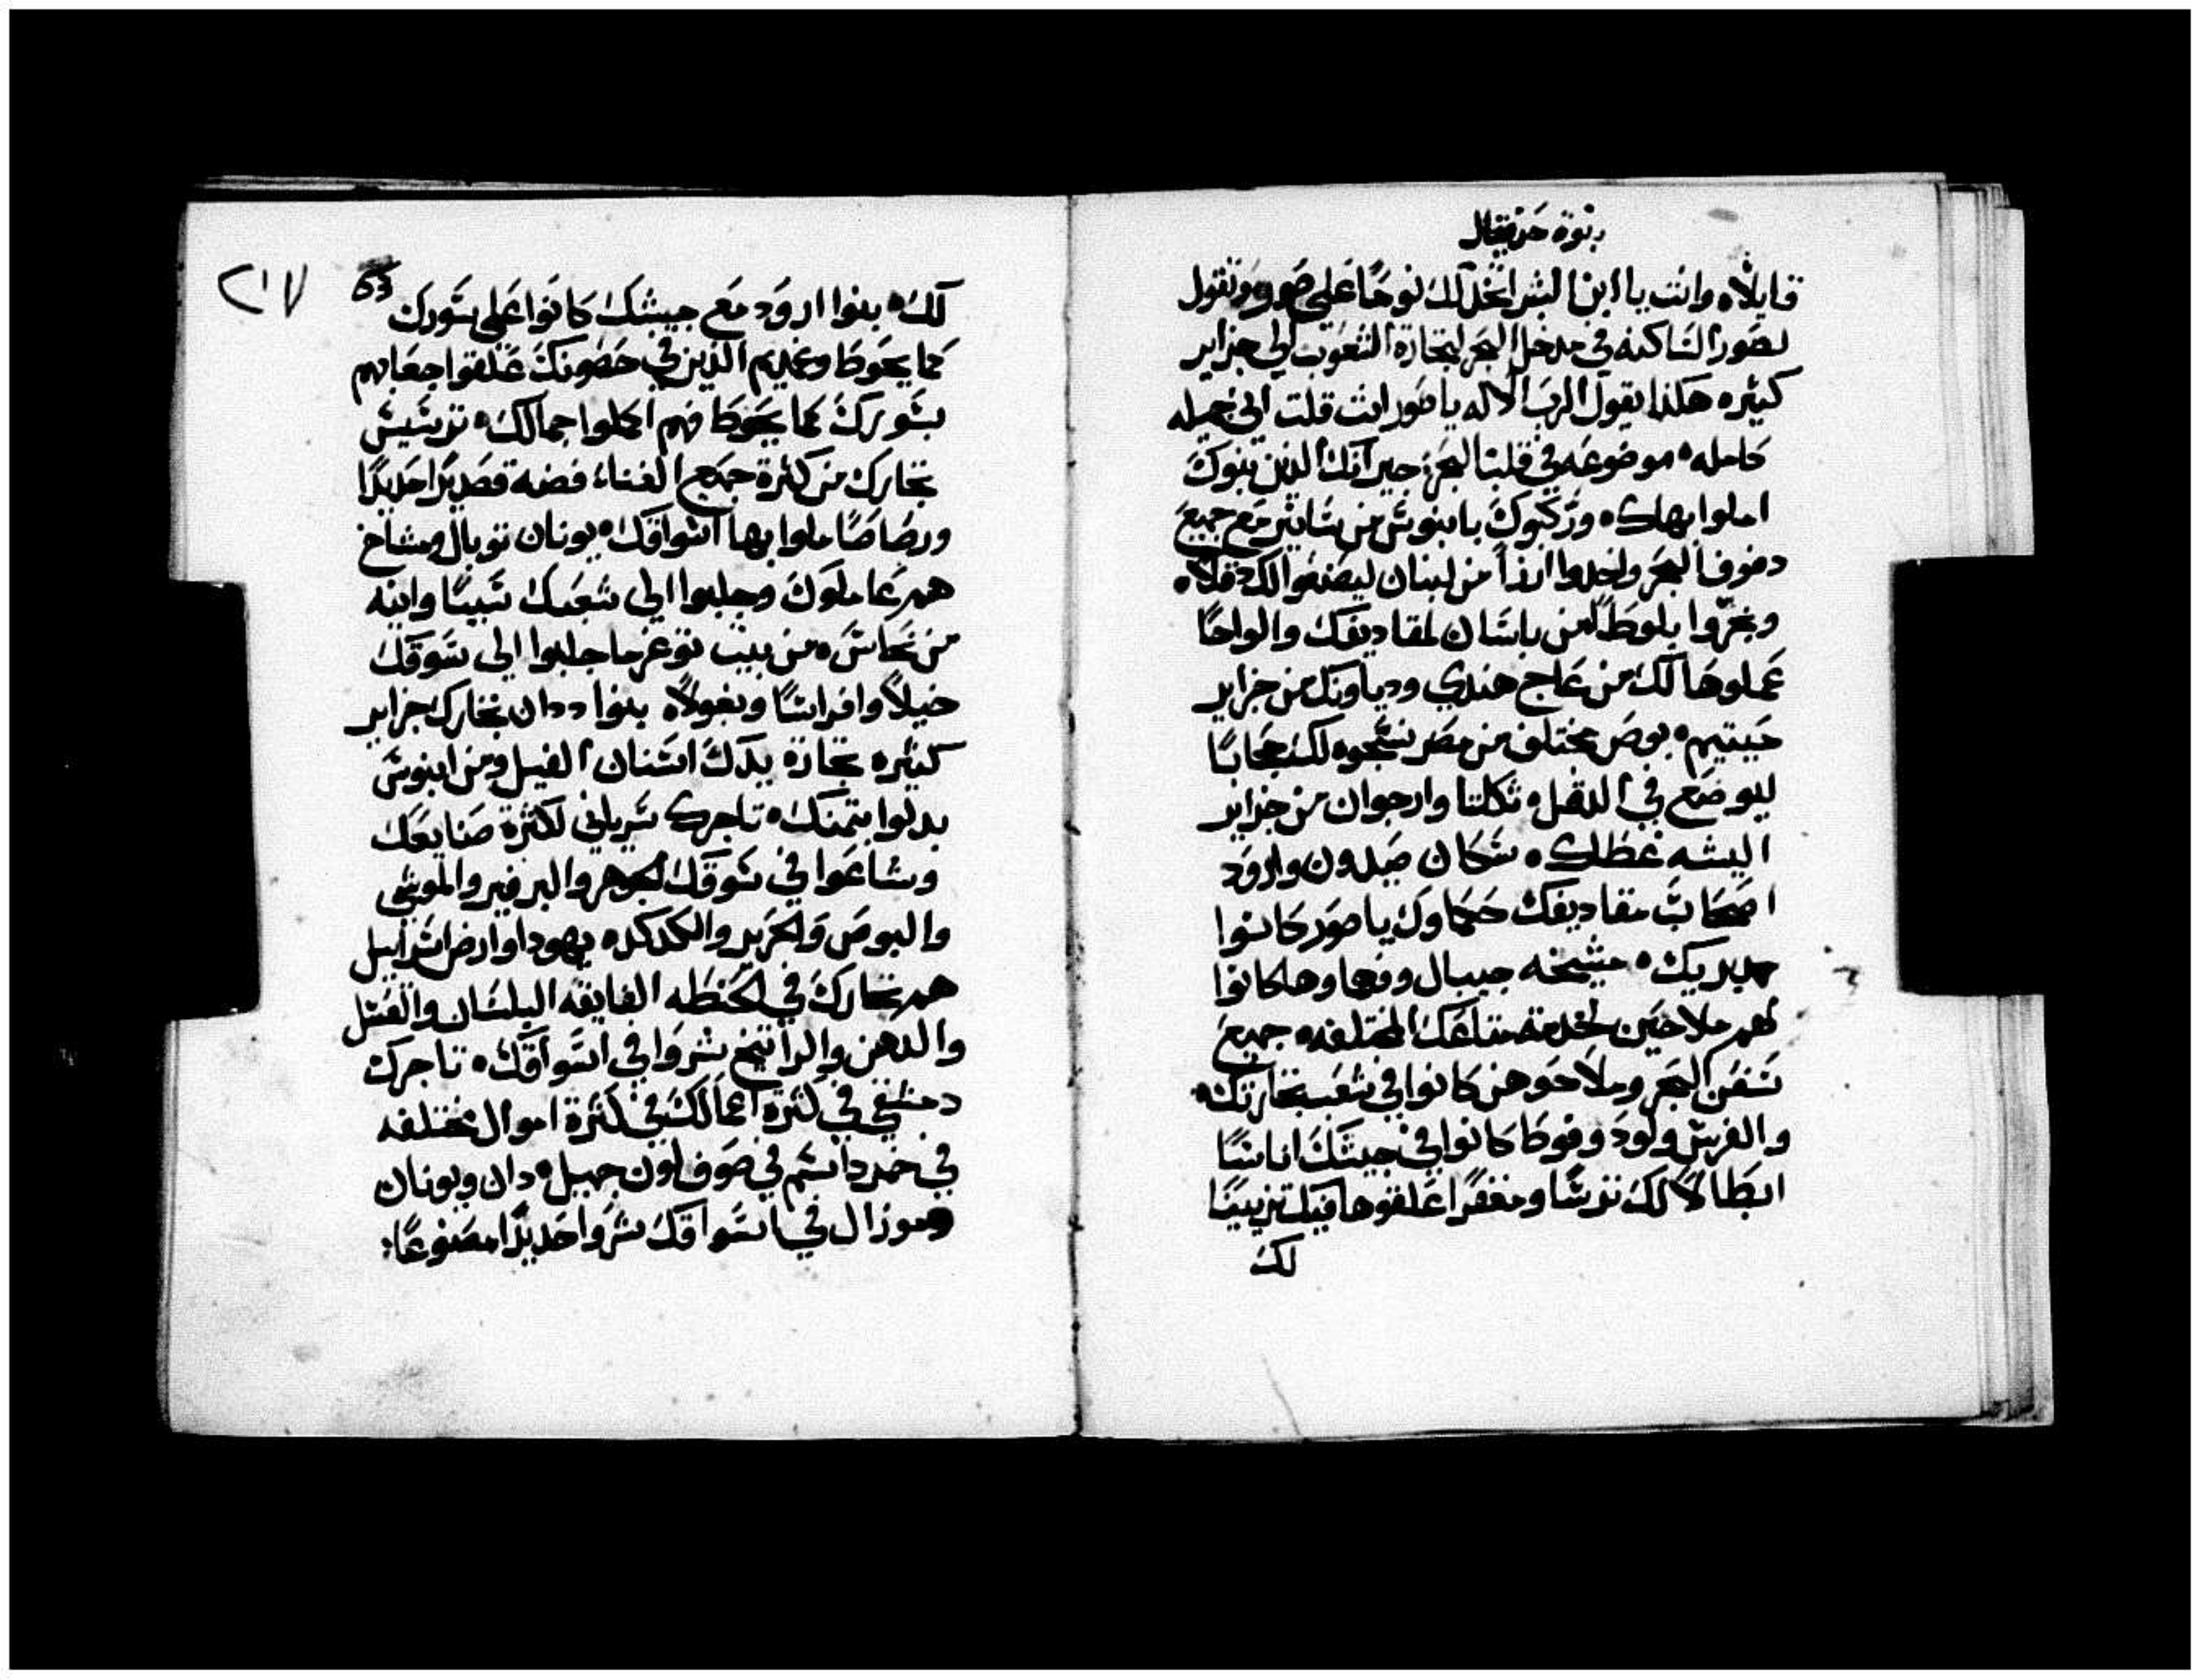 نبوة حزقيال
قايلاً ٥ وانت يا ابن البشر اتخذ لك نوحًا على صور وتقول
لصور الساكنه في مدخل البحر لتجارة الشعوب الي جزاير
كثيره هكذا يقول الرب الاله يا صور انت قلت اني جميله
كامله ٥ موضوعه في قلب البحر جيرانك الذين بنوك
املوا بهاك ٥ وركبوك بابنوس من سانير مع جميع
دفوف البحر واخدوا ارزاً من لبنان ليصنعوا لك دقلاً ٥
ونجروا بلوطًا من باسان لمقاديفك والواحًا
عملوها لك من عاج هندي ودياونك من جزاير
حيتيم ٥ بوص مختلف من مصر نسجوه لك حجابًا
ليوضع في الدقل ٥ تكلتا وارجوان من جزاير
اليشه غطاك ٥ سكان صيدون وارود
اصحاب مقاديفك حكماوك يا صور كانوا
مدبريك ٥ مشيخه جيبال وفهماوها كانوا
لهم ملاحين لخدمة متاعك المختلفه ٥ جميع
سفن البحر وملاحوهن كانوا في شعب تجارتك ٥
والفرس ولود وفوطا كانوا في جيشك اناسًا
ابطالاً لك ترسًا ومغفرًا علقوها فيك تزيينًا
لك
٢١٧
63
لك ٥ بنوا ارود مع جيشك كانوا على سورك
كما يحوط وغيرهم الذين في حصونك علقوا جعابهم
بسورك كما يحوط فهم اكملوا جمالك ٥ ترشيش
تجارك من كثرة جميع الغناء فضه قصديرًا حديدًا
ورصاصًا ملوا بها اسواقك ٥ يونان توبال ومشاخ
هم عاملوك وجلبوا الي شعبك سبيًا وانيه
من نحاس ٥ من بيت توغرما جلبوا الي سوقك
خيلاً وافراسًا وبغولاً ٥ بنوا ددان تجارك جزاير
كثيره تجارة يدك اسنان الفيل ومن ابنوس
بدلوا بثمنك ٥ تاجرك سرياني لكثرة صنايعك
وشاعوا في سوقك الجوهر والبرفير والموشي
والبوص والحرير والكدكد ٥ يهودا وارض اسراييل
هم تجارك في الحنطه الفايقه البلسان والعسل
والدهن والراتينج شروا في اسواقك ٥ تاجرك
دمشقي في كثرة اعمالك في كثرة اموال مختلفه
في خمر دسم في صوف لون جميل ٥ دان ويونان
وموزال في اسواقك شروا حديدًا مصنوعًا: